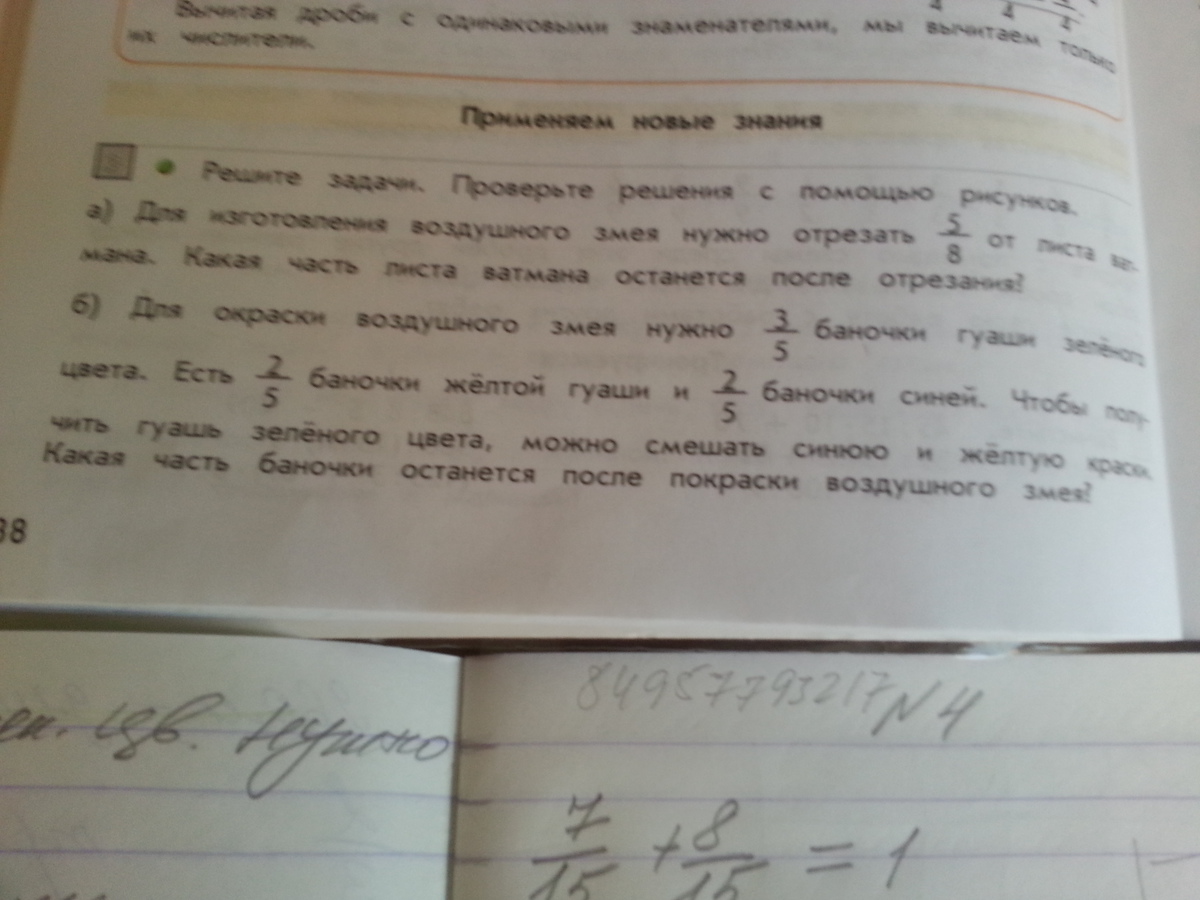 Вычитая дроби с одинаковыми знаменателями, мы вычитаем только
их числители.
Применяем новые знания
Решите задачи. Проверьте решения с помощью рисунков.
а) Для изготовления воздушного змея нужно отрезать 5/8 от листа ват-
мана. Какая часть листа ватмана останется после отрезания?
б) Для окраски воздушного змея нужно 3/5 баночки гуаши зелёного
цвета. Есть 2/5 баночки жёлтой гуаши и 2/5 баночки синей. Чтобы полу-
чить гуашь зелёного цвета, можно смешать синюю и жёлтую краски.
Какая часть баночки останется после покраски воздушного змея?
38
цв. Нужно
84957793217 N 4
7/15 + 8/15 = 1